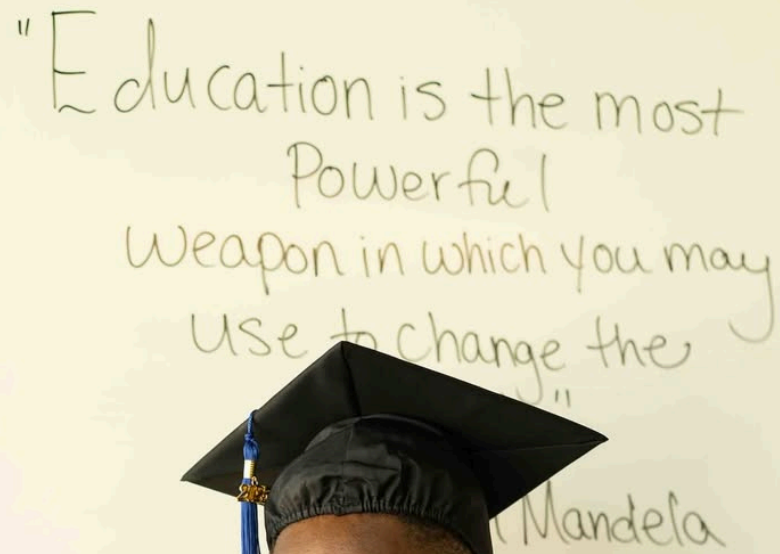 "Education is the most
Powerful
weapon in which you may
use to change the
"
Mandela